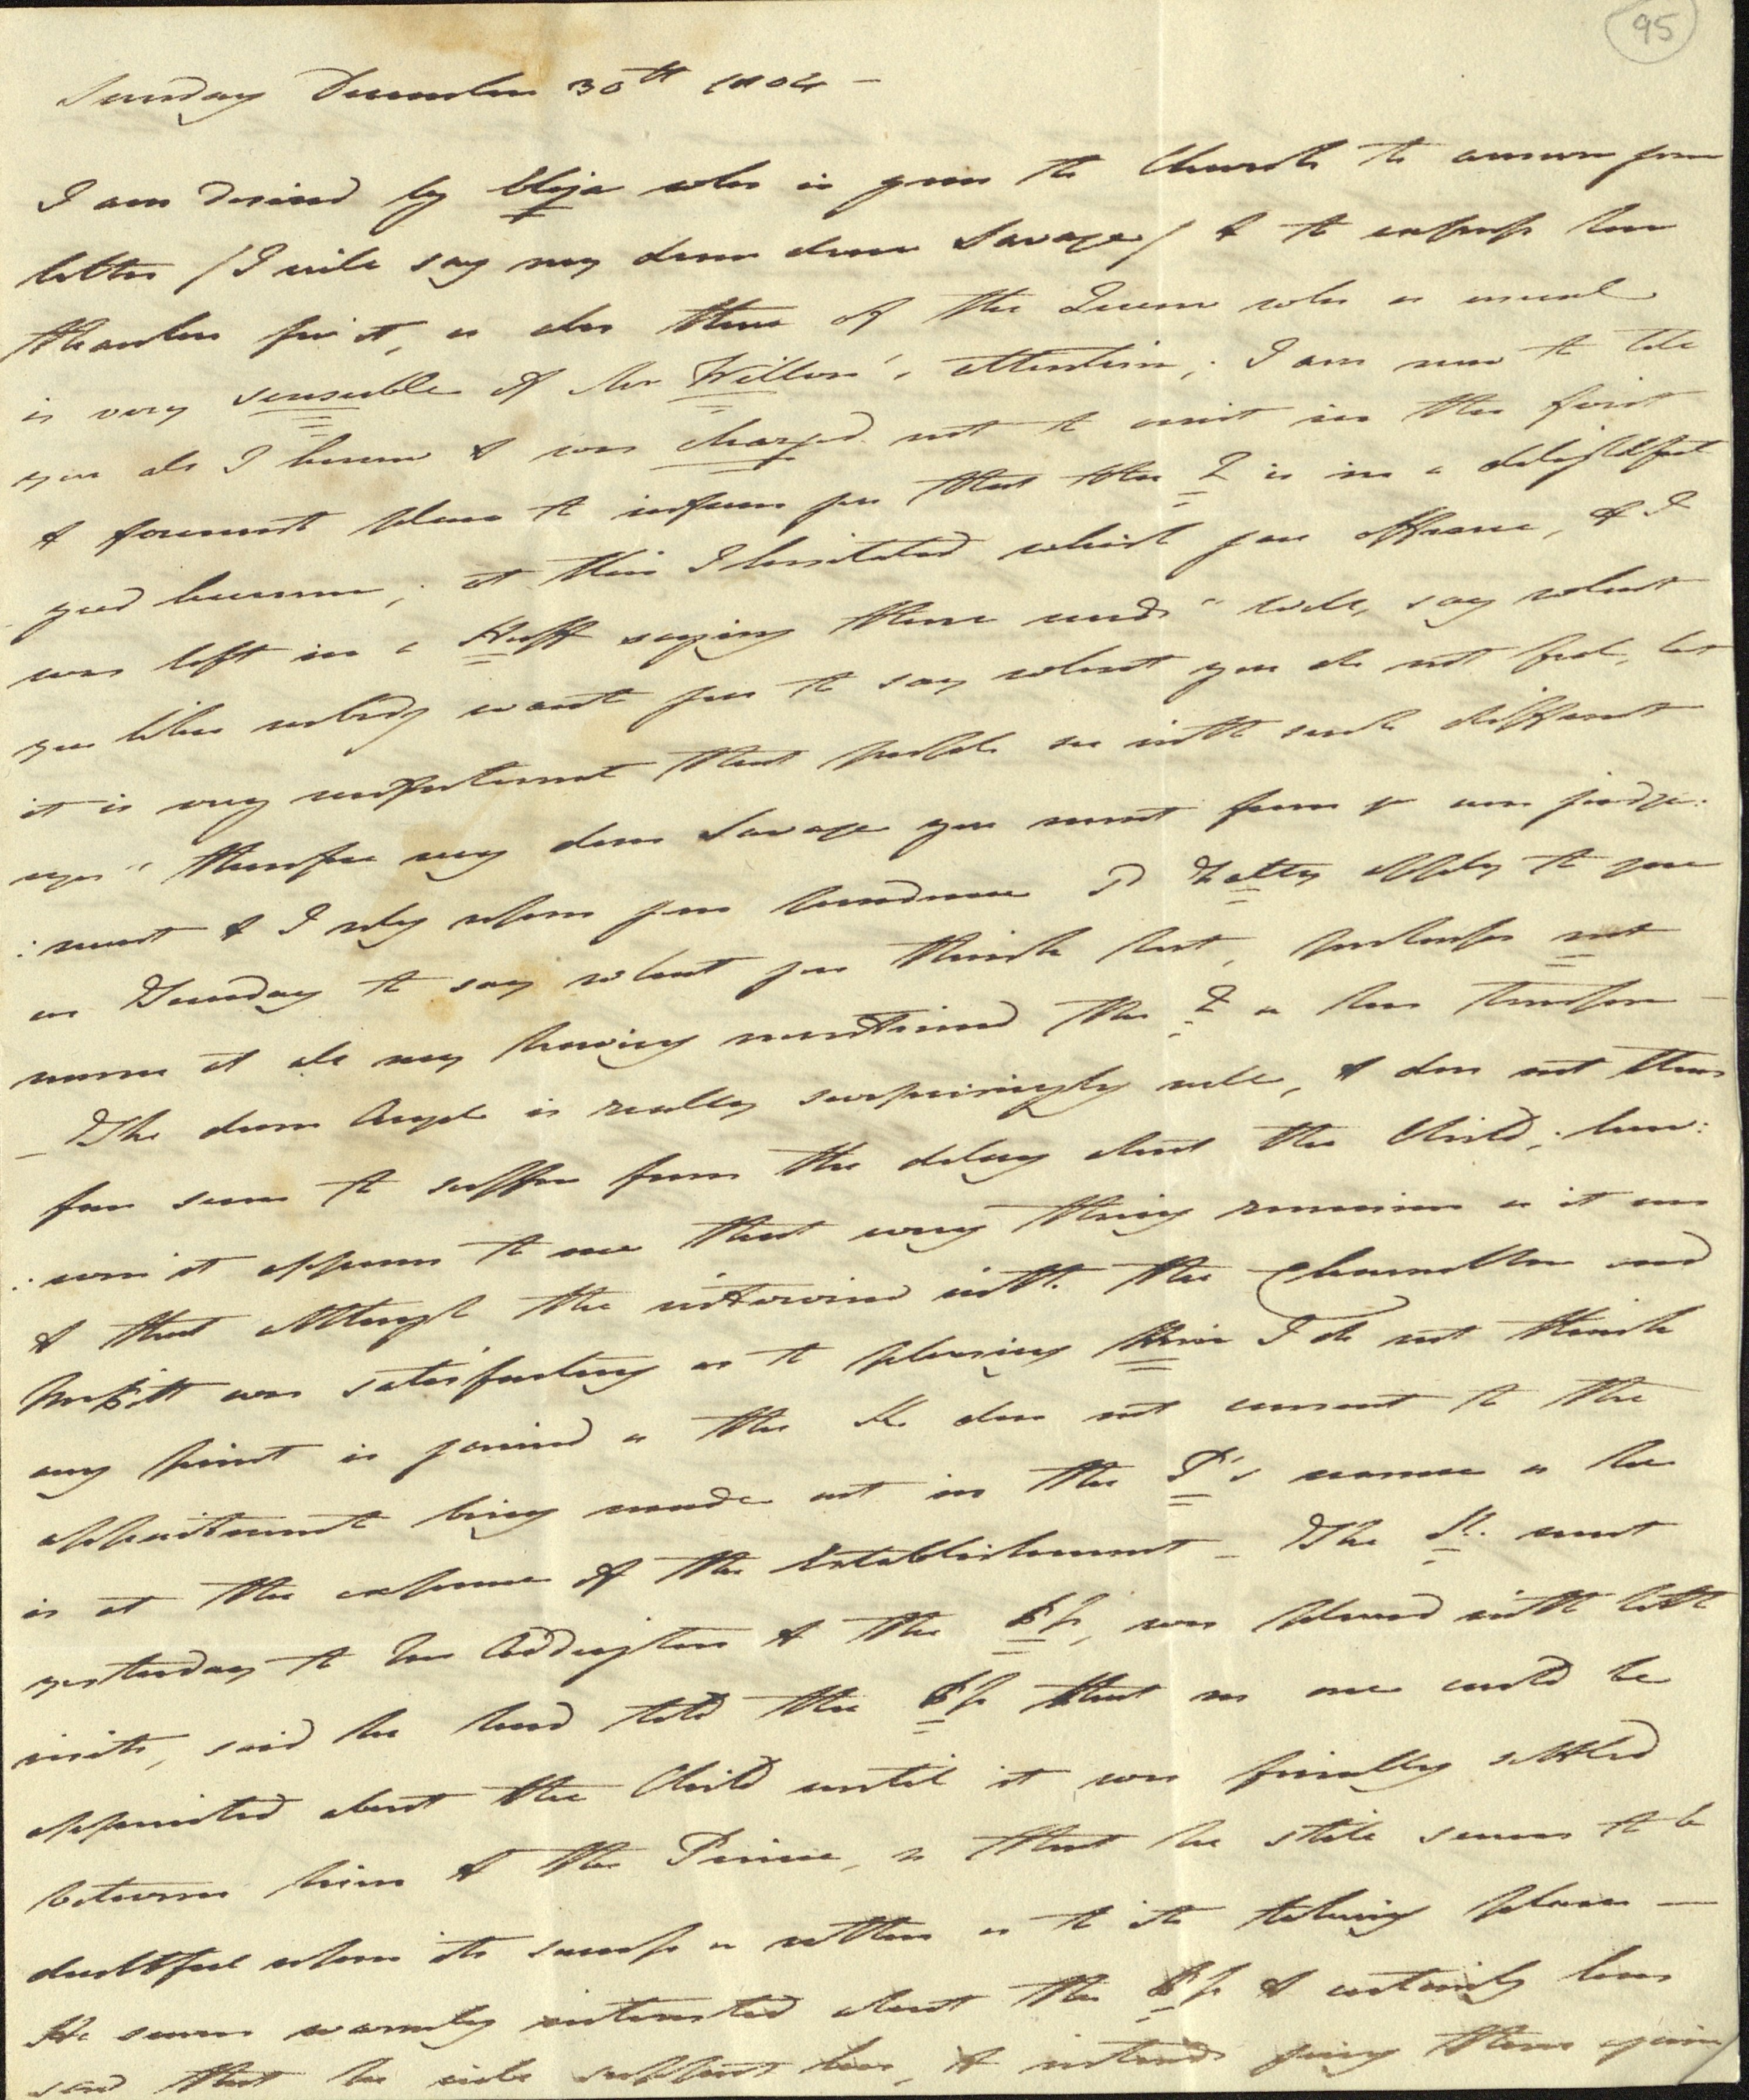 95
Sunday December 30th 1804 —
I am desired by Eliza who is gone to Church to answer your
letter / I will say my dear dear Savage / & to express her
thanks for it, as also those of the Queen who as usual
is very sensible of Mr Willson's attention; I am now to tell
you all I know & was charged not to omit in the first
& foremost place to inform you that the Q is in a delightful
good humour; at this I hesitated which gave offence, & I
was left in a Huff saying these words "well, say what
you like nobody wants you to say what you do not feel, but
it is very unfortunate that people see with such different
eyes" therefore my dear Savage you must form yr own judge:
:ment & I rely upon your kindness sd Fatty apply to you
on Tuesday to say what you think best, perhaps not
name at all my having mentioned the Q or her temper —
_ The dear Angel is really surprisingly well, & does not thus
far seem to suffer from the delay about the Child; how:
:ever it appears to me that every thing remains as it was
& that although the interview with the Chancellor and
Mr Pitt was satisfactory as to pleasing him I do not think
any point is gained as the K. does not consent to the
appointments being made out in the P's name as he
is at the expense of the Establishment — The K. went
yesterday to see Addington & the Bp, was pleased with both
visits, said he had told the Bp that no one could be
appointed about the Child until it was finally settled
between him & the Prince, so that he still seems to be
doubtful upon its success or rather as to its taking place —
He seems warmly interested about the Bp & certainly has
said that he will support him, & intends going there again